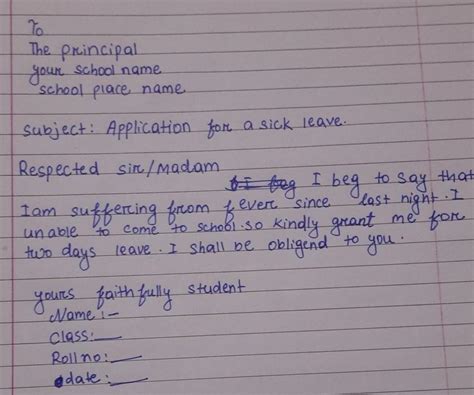 To
The principal
your school name
school place name
Subject: Application for a sick leave.
Respected sir/Madam
I beg I beg to say that
Iam suffering from fever since last night. I
unable to come to school. so kindly grant me for
two days leave. I shall be obligend to you.
yours faithfully student
Name:-
Class:__
Roll no:__
date:__